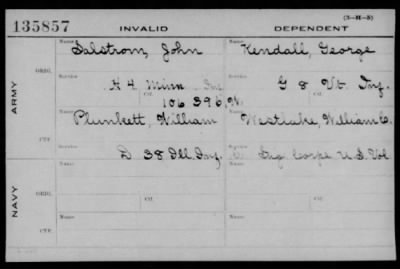 (3-H-5)
135857 INVALID DEPENDENT
Name Name
Dalstrom, John Kendall, George
ORIG. Service Service
H 4 Minn Inf G 8 Vt. Inf.
Ctf. Ctf.
106 396, N.
ARMY
Name Name
Plunkett, William Westlake, William C.
CTF. Service
D 38 Ill. Inf. Sig Corps U.S. Vol
Name Name
NAVY ORIG. Ctf. Ctf.
Name Name
CTF.